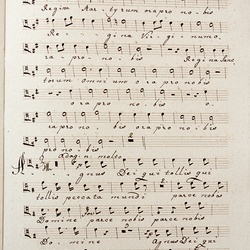 Regina Martyrum ora pro no - bis
Re - gina Vir - ginum o.
ra - pro no - bis Regina Sanc
torum omnium ora pro nobis
ora pro no - bis o.
ra pro no - bis ora pro no - bis
pro no - bis
Adagio molto
A - gnus Dei qui tollis qui
tollis peccata mundi parce nobis
Domine parce nobis parce nobis
Do - mine Agnus Dei qui